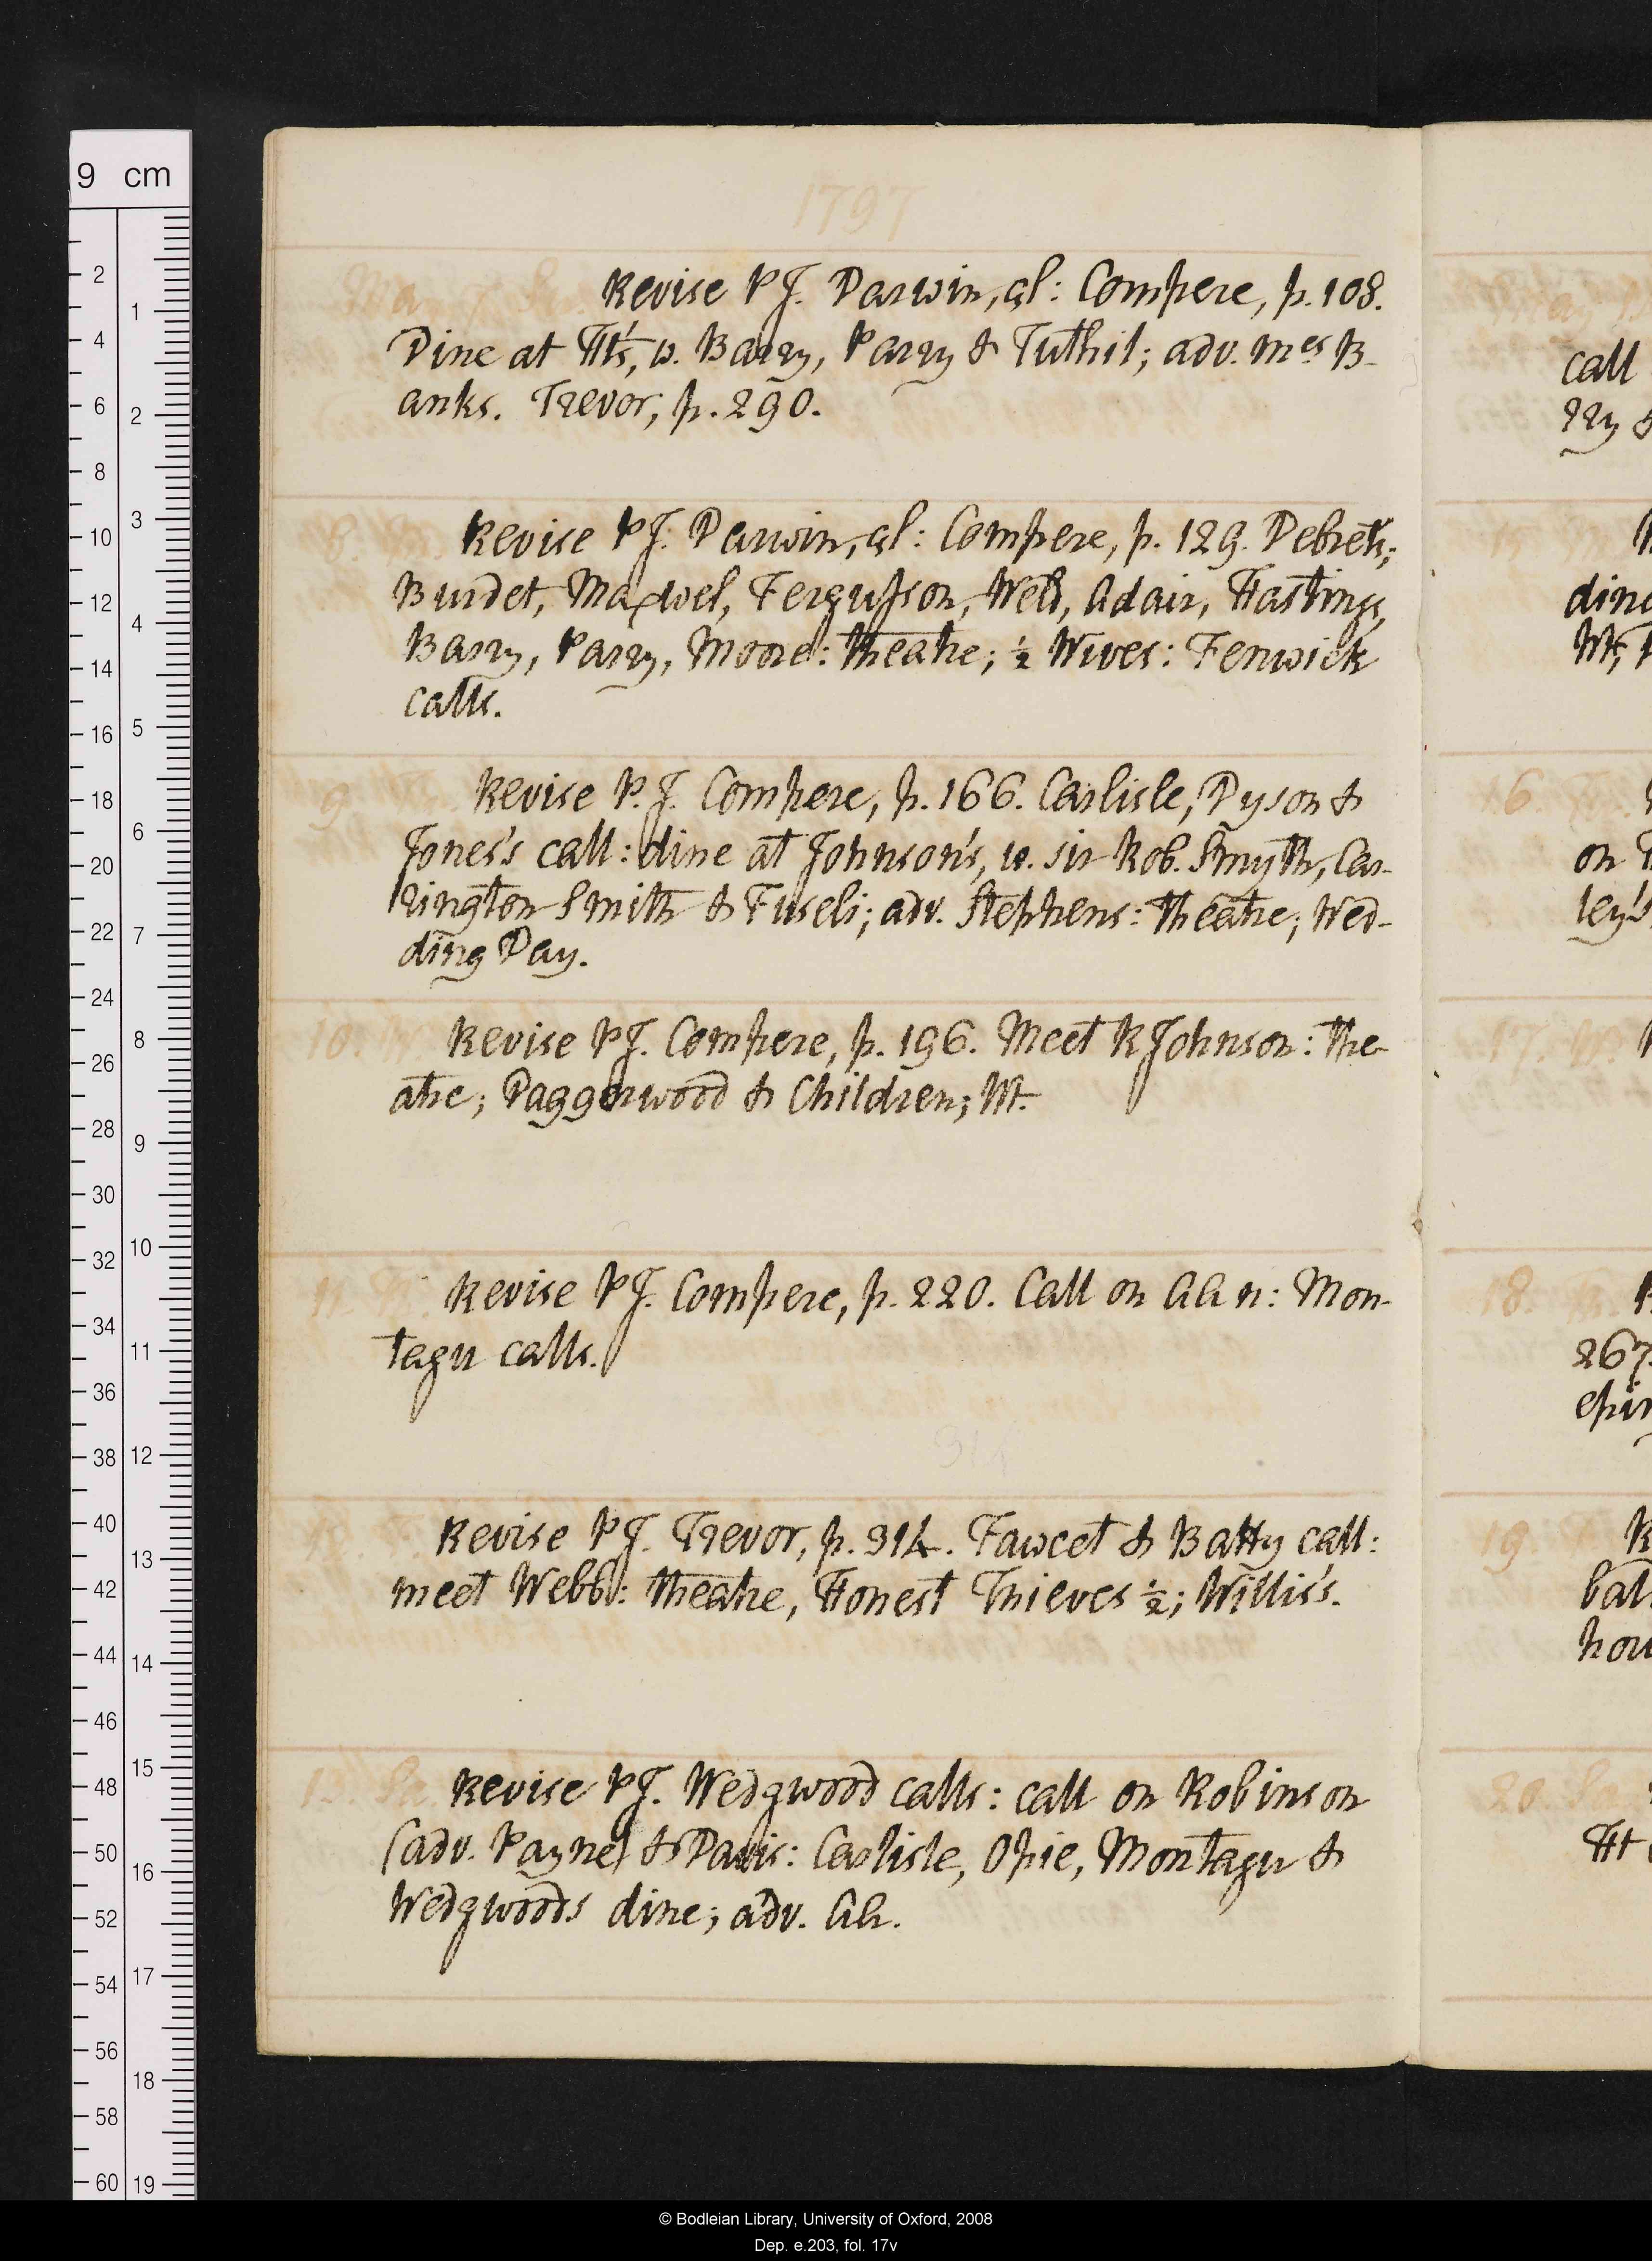 1797
Revise PJ. Darwin, ql: Compere, p. 108.
Dine at Ht's, w. Barry, Parry & Tuthil; adv. mes B-
anks. Trevor, p. 290.
8.
Revise PJ. Darwin, ql: Compere, p. 129. Debret's;
Burdet, Maxwel, Fergusson, Weld, Adair, Hastings,
Barry, Parry, Moore: theatre; ½ Wives: Fenwick
calls.
9
Revise P.J. Compere, p. 166. Carlisle, Dyson &
Jones's call: dine at Johnson's, w. sir Rob. Smyth, Car-
rington Smith & Fuseli; adv. Stephens: theatre; Wed-
ding Day.
10.
Revise PJ. Compere, p. 196. Meet R Johnson: the-
atre; Daggerwood & Children; Wt.
11.
Revise PJ. Compere, p. 220. Call on AA n: Mon-
tagu calls.
Revise PJ. Trevor, p. 314. Fawcet & Batty call:
meet Webb: theatre, Honest Thieves ½; Willis's.
13. Sa.
Revise PJ. Wedgwood calls: call on Robinson
(adv. Payne) & Davis: Carlisle, Opie, Montagu &
Wedgwoods dine; adv. AA.
call
rry &
16.
on
ley's
18.
267.
19.
20.
Ht
9 cm
2
4
6
8
10
12
14
16
18
20
22
24
26
28
30
32
34
36
38
40
42
44
46
48
50
52
54
56
58
60
1
2
3
4
5
6
7
8
9
10
11
12
13
14
15
16
17
18
19
© Bodleian Library, University of Oxford, 2008
Dep. e.203, fol. 17v